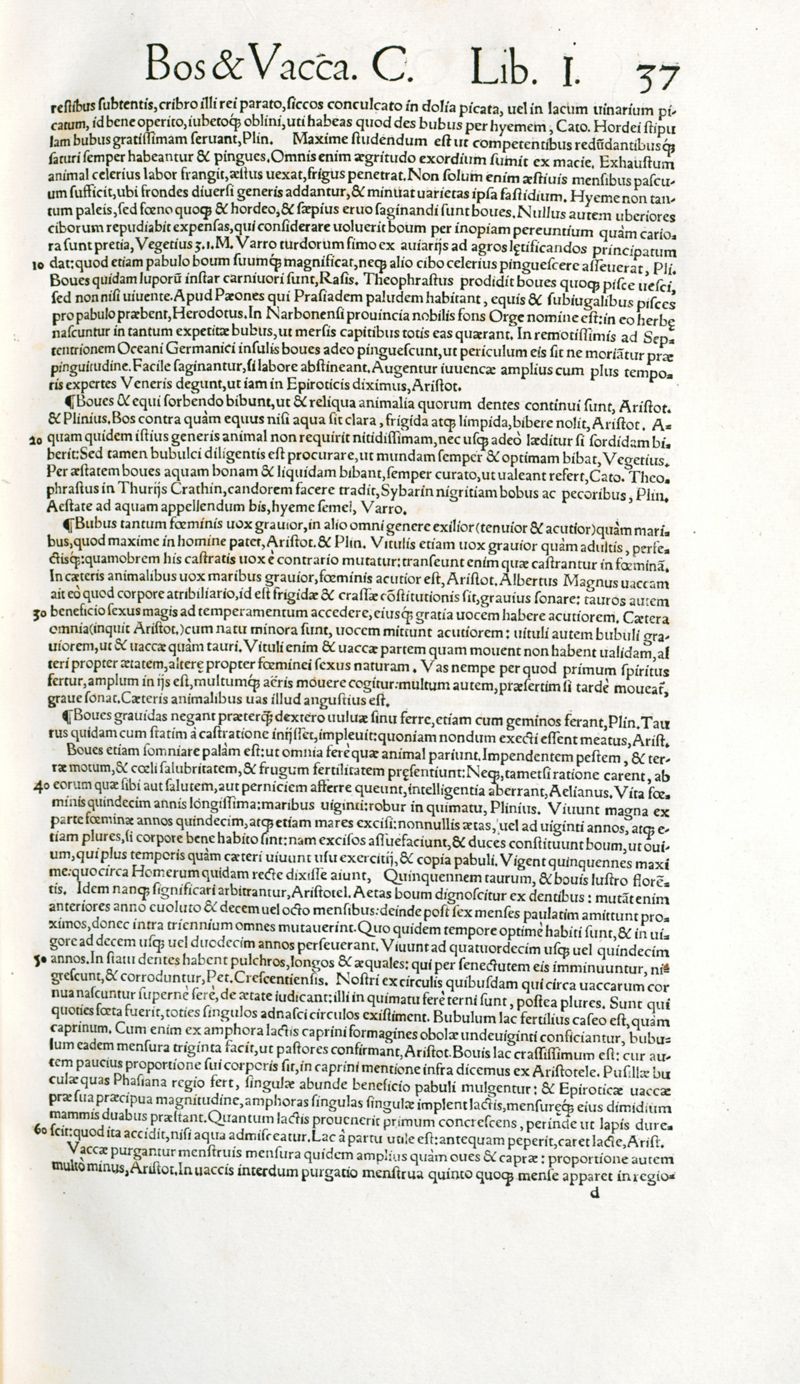 Bos & Vacca. C. Lib. I. 37
restibus subtentis, cribro illi rei parato, siccos conculcato in dolia picata, uel in lacum uinarium pi-
catum, id bene operito, iubetoq; oblini, uti habeas quod des bubus per hyemem, Cato. Hordei stipu
lam bubus gratissimam seruant, Plin. Maxime studendum est ut competentibus redũdantibusq;
saturi semper habeantur & pingues. Omnis enim ægritudo exordium sumit ex macie. Exhaustum
animal celerius labor frangit, æstus uexat, frigus penetrat. Non solum enim æstiuis mensibus pascu-
um sufficit, ubi frondes diuersi generis addantur, & minuat uarietas ipsa fastidium. Hyeme non tan-
tum paleis, sed fœno quoq; & hordeo, & sæpius eruo saginandi sunt boues. Nullus autem uberiores
ciborum repudiabit expensas, qui considerare uoluerit boum per inopiam pereuntium quàm cario-
ra sunt pretia, Vegetius 3.1. M. Varro turdorum fimo ex auiarijs ad agros lętificandos principatum
10 dat: quod etiam pabulo boum suumq; magnificat, neq; alio cibo celerius pinguescere asseuerat, Pli.
Boues quidam luporũ instar carniuori sunt, Rasis. Theophrastus prodidit boues quoq; pisce uesci,
sed non nisi uiuente. Apud Pæones qui Prasiadem paludem habitant, equis & subiugalibus pisces
pro pabulo præbent, Herodotus. In Narbonensi prouincia nobilis fons Orge nomine est: in eo herbę
nascuntur in tantum expetitæ bubus, ut mersis capitibus totis eas quærant. In remotissimis ad Sep-
tentrionem Oceani Germanici insulis boues adeo pinguescunt, ut periculum eis sit ne moriãtur præ
pinguitudine. Facile saginantur, si labore abstineant. Augentur iuuencæ amplius cum plus tempo-
ris expertes Veneris degunt, ut iam in Epiroticis diximus, Aristot.
¶ Boues & equi sorbendo bibunt, ut & reliqua animalia quorum dentes continui sunt, Aristot.
& Plinius. Bos contra quàm equus nisi aqua sit clara, frigida atq; limpida, bibere nolit, Aristot. A-
20 quam quidem istius generis animal non requirit nitidissimam, nec usq; adeò læditur si sordidam bi-
berit: Sed tamen bubulci diligentis est procurare, ut mundam semper & optimam bibat, Vegetius.
Per æstatem boues aquam bonam & liquidam bibant, semper curato, ut ualeant refert, Cato. Theo-
phrastus in Thurijs Crathin, candorem facere tradit, Sybarin nigritiam bobus ac pecoribus, Plin.
Aestate ad aquam appellendum bis, hyeme semel, Varro.
¶ Bubus tantum fœminis uox grauior, in alio omni genere exilior (tenuior & acutior) quàm mari-
bus, quod maxime in homine patet, Aristot. & Plin. Vitulis etiam uox grauior quàm adultis, perfe-
ctisq;: quamobrem his castratis uox è contrario mutatur: transeunt enim quæ castrantur in fœminã.
In cæteris animalibus uox maribus grauior, fœminis acutior est, Aristot. Albertus Magnus uaccam
ait eò quod corpore atribiliario, id est frigidæ & crassæ cõstitutionis sit, grauius sonare: tauros autem
30 beneficio sexus magis ad temperamentum accedere, eiusq; gratia uocem habere acutiorem. Cætera
omnia (inquit Aristot.) cum natu minora sunt, uocem mittunt acutiorem: uituli autem bubuli gra-
uiorem, ut & uaccæ quàm tauri. Vituli enim & uaccæ partem quam mouent non habent ualidam, al
teri propter ætatem, alterę propter fœminei sexus naturam. Vas nempe per quod primum spiritus
fertur, amplum in ijs est, multumq; aëris mouere cogitur: multum autem, præsertim si tardè moueat̃,
graue sonat. Cæteris animalibus uas illud angustius est.
¶ Boues grauidas negant præterq; dextero uuluæ sinu ferre, etiam cum geminos ferant, Plin. Tau
rus quidam cum statim à castratione inijsset, impleuit: quoniam nondum execti essent meatus, Arist.
Boues etiam somniare palàm est: ut omnia ferè quæ animal pariunt. Impendentem pestem, & ter-
ræ motum, & cœli salubritatem, & frugum fertilitatem pręsentiunt: Neq;, tametsi ratione carent, ab
40 eorum quæ sibi aut salutem, aut perniciem afferre queunt, intelligentia aberrant, Aelianus. Vita fœ-
minis quindecim annis longissima: maribus uiginti: robur in quimatu, Plinius. Viuunt magna ex
parte fœminæ annos quindecim, atq; etiam mares excisi: nonnullis ætas, uel ad uiginti annos, atq; e-
tiam plures, si corpore bene habito sint: nam excisos assuefaciunt, & duces constituunt boum, ut oui-
um, qui plus temporis quàm cæteri uiuunt usu exercitij, & copia pabuli. Vigent quinquennes maxi
me: quocirca Homerum quidam recte dixisse aiunt, Quinquennem taurum, & bouis lustro florẽ-
tis. Idem nanq; significari arbitrantur, Aristotel. Aetas boum dignoscitur ex dentibus: mutãt enim
anteriores anno euoluto & decem uel octo mensibus: deinde post sex menses paulatim amittunt pro-
ximos, donec intra triennium omnes mutauerint. Quo quidem tempore optimè habiti sunt, & in ui-
gore ad decem usq; uel duodecim annos perseuerant. Viuunt ad quatuordecim usq; uel quindecim
50 annos. In statu dentes habent pulchros, longos & æquales: qui per senectutem eis imminuuntur, ni-
grescunt, & corroduntur, Pet. Crescentiensis. Nostri ex circulis quibusdam qui circa uaccarum cor
nua nascuntur supernè ferè, de ætate iudicant: illi in quimatu ferè terni sunt, postea plures. Sunt qui
quoties fœta fuerit, toties singulos adnasci circulos existiment. Bubulum lac fertilius caseo est, quàm
caprinum. Cum enim ex amphora lactis caprini formagines obolæ undeuiginti conficiantur, bubu-
lum eadem mensura triginta facit, ut pastores confirmant, Aristot. Bouis lac crassissimum est: cur au-
tem paucius proportione sui corporis sit, in caprini mentione infra dicemus ex Aristotele. Pusillæ bu
culæ quas Phasiana regio fert, singulæ abunde beneficio pabuli mulgentur: & Epiroticæ uaccæ
præ sua præcipua magnitudine, amphoras singulas singulæ implent lactis, mensuręq; eius dimidium
mammis duabus præstant. Quantum lactis prouenerit primum concrescens, perinde ut lapis dure-
60 scit: quod ita accidit, nisi aqua admisceatur. Lac à partu utile est: antequam peperit, caret lacte, Arist.
Vaccæ purgantur menstruis mensura quidem amplius quàm oues & capræ: proportione autem
multò minus, Aristot. In uaccis interdum purgatio menstrua quinto quoq; mense apparet in regio-
d